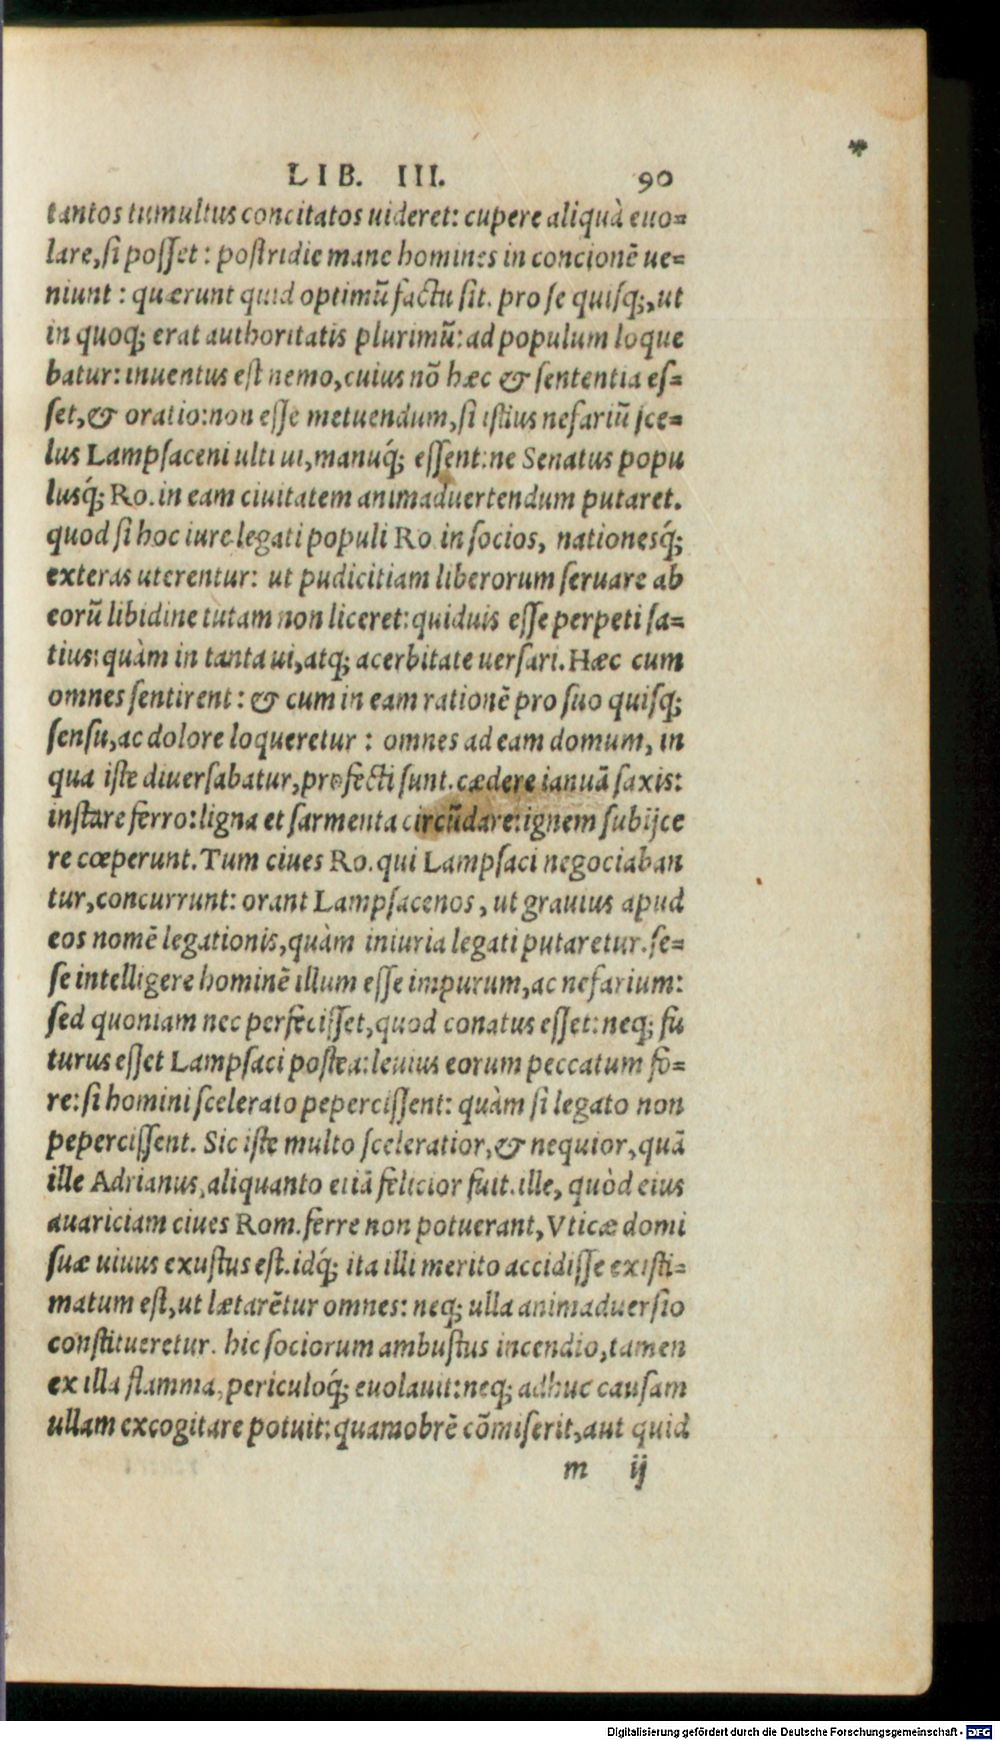 LIB. III. 90
tantos tumultus concitatos uideret: cupere aliquà euo=
lare, si posset: postridie mane homines in concionē ue=
niunt: quærunt quid optimū factu sit. pro se quisq;, ut
in quoq; erat authoritatis plurimū: ad populum loque
batur: inuentus est nemo, cuius nō hæc & sententia es=
set, & oratio: non esse metuendum, si istius nefariū sce=
lus Lampsaceni ulti ui, manuq́; essent: ne Senatus popu
lusq́; Ro. in eam ciuitatem animaduertendum putaret.
quod si hoc iure legati populi Ro in socios, nationesq́;
exteras uterentur: ut pudicitiam liberorum seruare ab
eorū libidine tutam non liceret: quiduis esse perpeti sa=
tius: quàm in tanta ui, atq; acerbitate uersari. Hæc cum
omnes sentirent: & cum in eam rationē pro suo quisq;
sensu, ac dolore loqueretur: omnes ad eam domum, in
qua iste diuersabatur, profecti sunt. cædere ianuā saxis:
instare ferro: ligna et sarmenta circūdare: ignem subijce
re cœperunt. Tum ciues Ro. qui Lampsaci negociaban
tur, concurrunt: orant Lampsacenos, ut grauius apud
eos nomē legationis, quàm iniuria legati putaretur. se=
se intelligere hominē illum esse impurum, ac nefarium:
sed quoniam nec perfecisset, quod conatus esset: neq; fu
turus esset Lampsaci postea: leuius eorum peccatum fo=
re: si homini scelerato pepercissent: quàm si legato non
pepercissent. Sic iste multo sceleratior, & nequior, quā
ille Adrianus, aliquanto etiā felicior fuit. ille, quòd eius
auariciam ciues Rom. ferre non potuerant, Vticæ domi
suæ uiuus exustus est. idq́; ita illi merito accidisse existi=
matum est, ut lætarētur omnes: neq; ulla animaduersio
constitueretur. hic sociorum ambustus incendio, tamen
ex illa flamma, periculoq́; euolauit: neq; adhuc causam
ullam excogitare potuit: quamobrē cōmiserit, aut quid
m ij
Digitalisierung gefördert durch die Deutsche Forschungsgemeinschaft - DFG